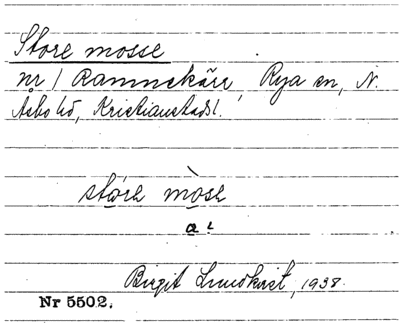 Store mosse
nr 1 Ramnekärr, Rya sn, N.
Åsbo hd, Kristianstads l.
stóre mòse
a.
Birgit Lundkvist, 1938.
Nr 5502.